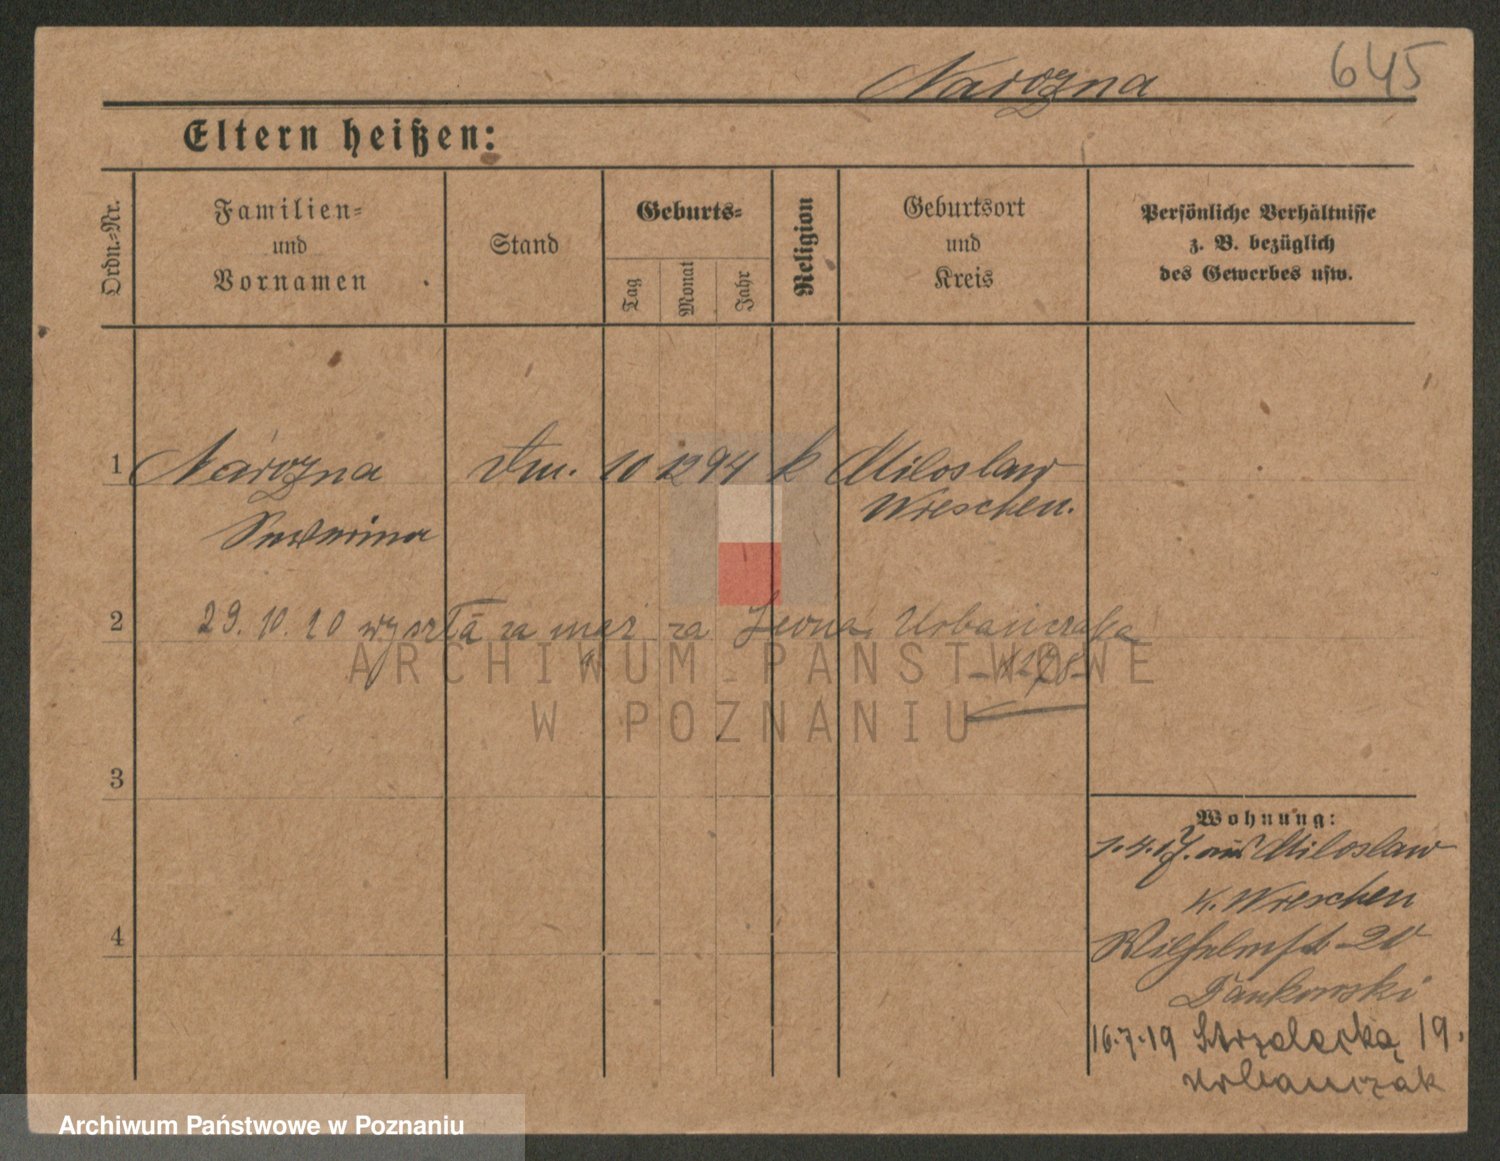 Narozna
645
Eltern heißen:
Ordn.-Nr.
Familien-
und
Vornamen
Stand
Geburts-
Tag
Monat
Jahr
Religion
Geburtsort
und
Kreis
Persönliche Verhältnisse
z. B. bezüglich
des Gewerbes usw.
1 Narozna 10 12 94 k Miloslaw
Wreschen.
2 29.10.20 wyszła za mąż za Leona Urbańczaka
3
Wohnung:
1.4.17. aus Miloslaw
K. Wreschen
4
Wilhelmst 20
Dankowski
16.7.19 Strzelecka 19.
Urbańczak
ARCHIWUM PAŃSTWOWE
W POZNANIU
Archiwum Państwowe w Poznaniu